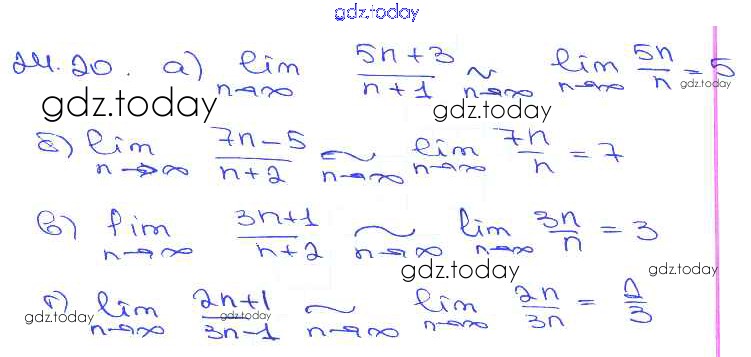 gdz.today
24.20. а) lim n→∞ (5n+3)/(n+1) ~ n→∞ lim n→∞ 5n/n = 5
gdz.today gdz.today gdz.today
б) lim n→∞ (7n-5)/(n+2) ~ n→∞ lim n→∞ 7n/n = 7
в) lim n→∞ (3n+1)/(n+2) ~ n→∞ lim n→∞ 3n/n = 3
gdz.today gdz.today
г) lim n→∞ (2n+1)/(3n-1) ~ n→∞ lim n→∞ 2n/3n = 2/3
gdz.today gdz.today